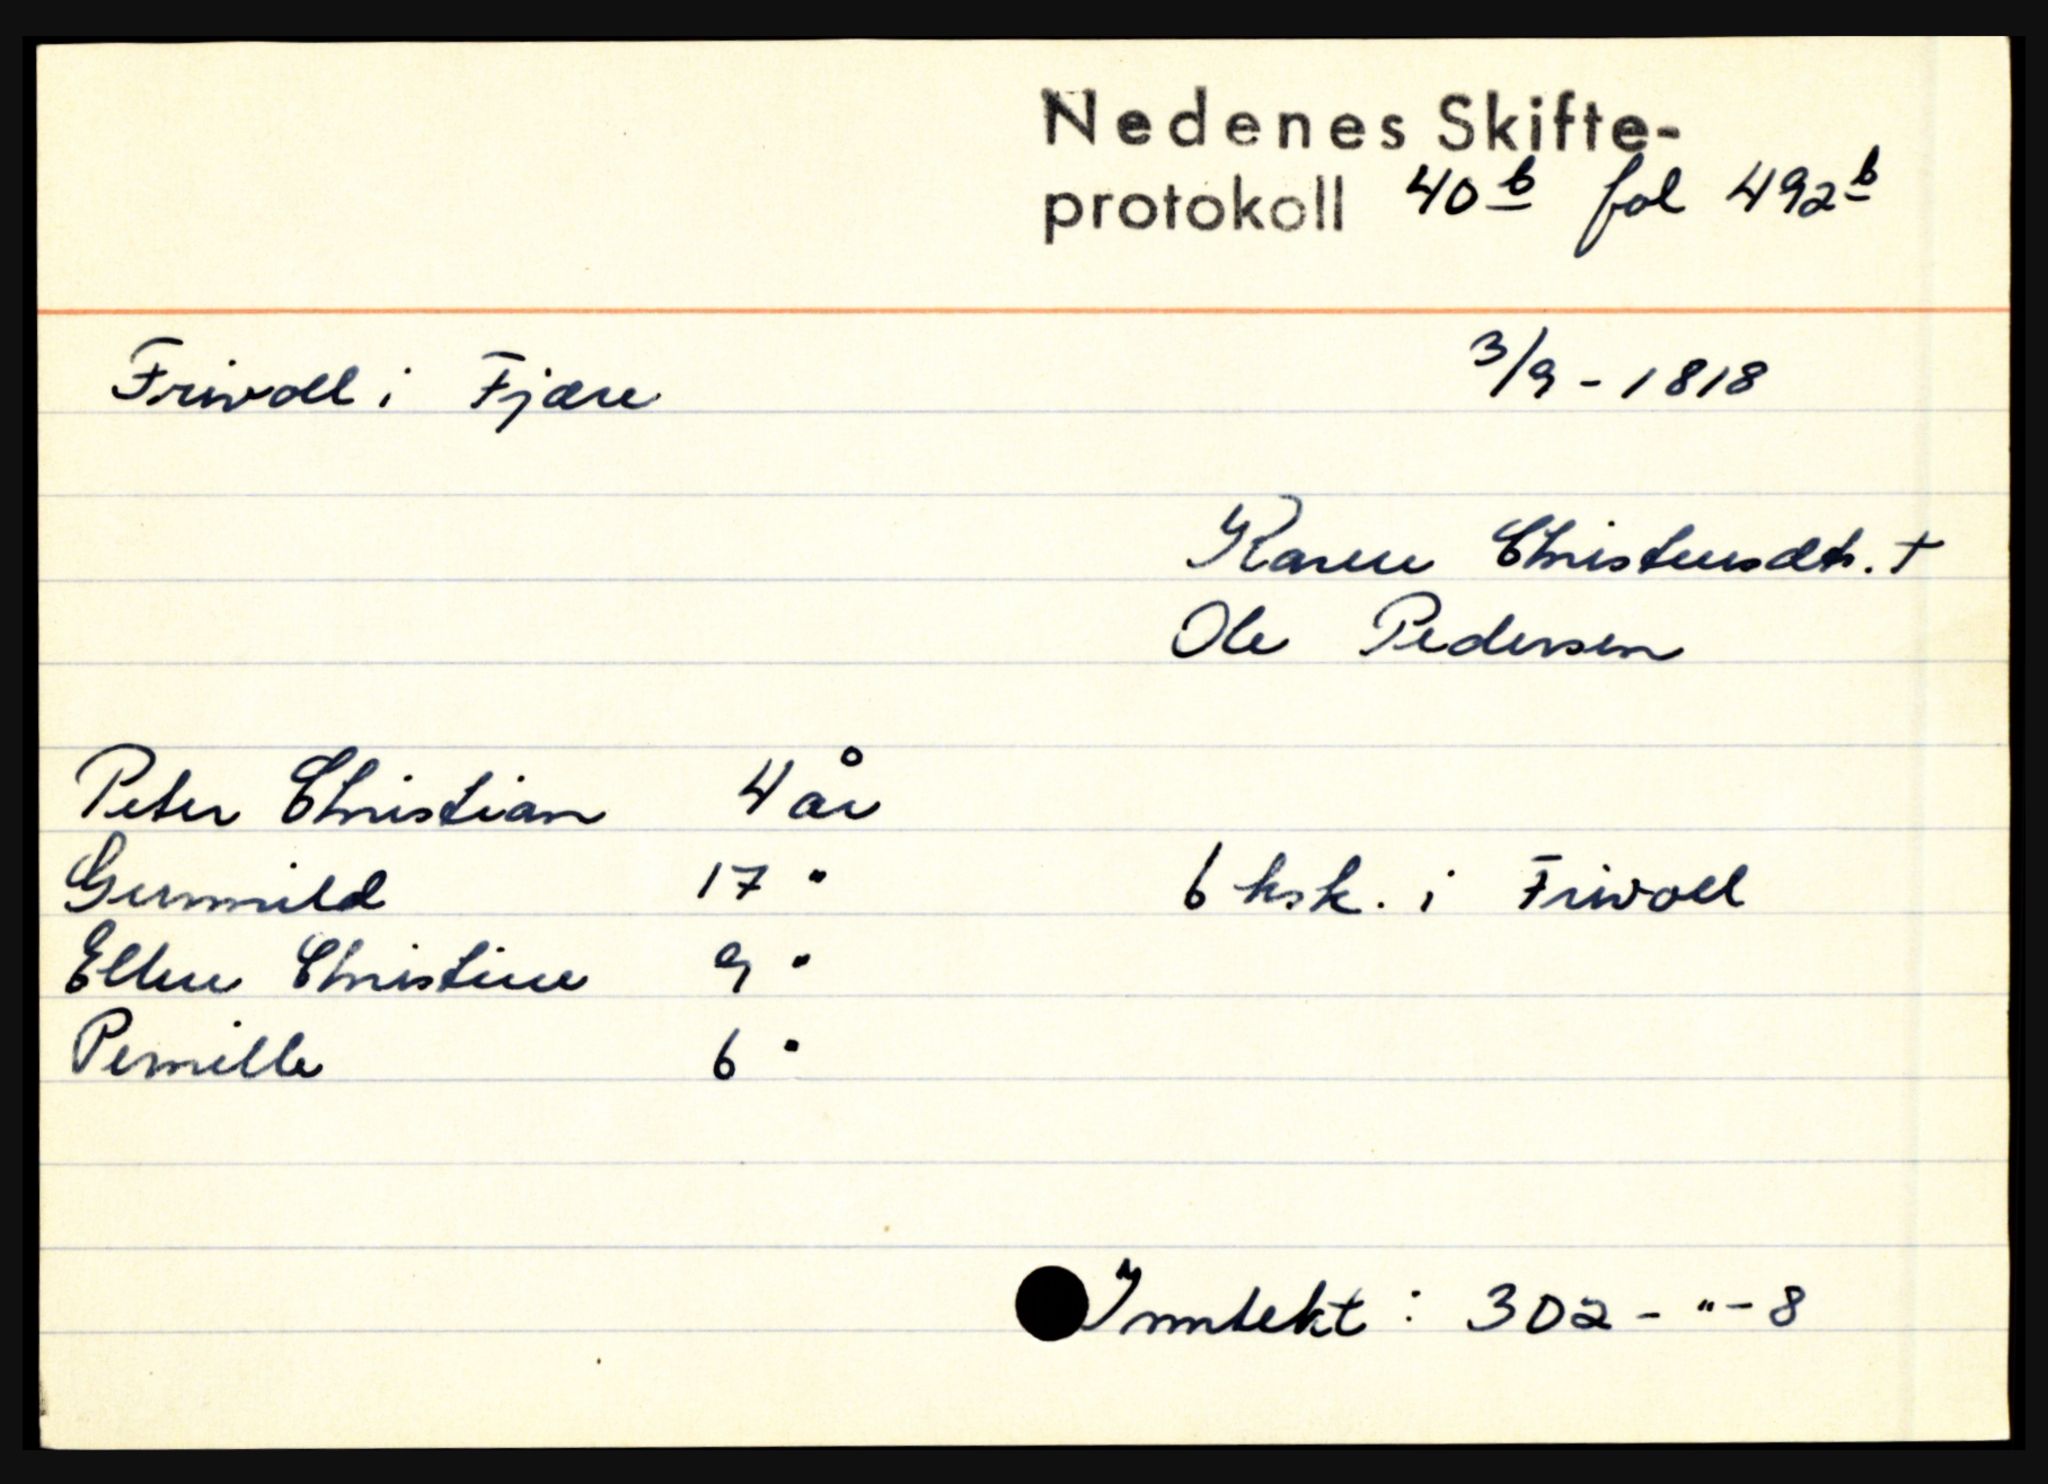 Nedenes Skifte-
protokoll 40b fol 492b
Frivoll i Fjære 3/9 - 1818
Karen Christensdtr. +
Ole Pedersen
Peter Christian 4 år
Gunnild 17 " 6 hsk. i Frivoll
Ellen Christine 9 "
Pernille 6 "
Inntekt : 302 - " - 8